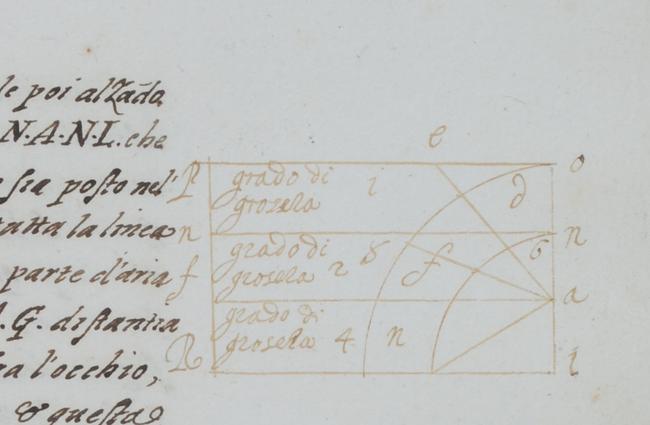 le poi alzãdo
N.A.N.L. che
sia posto nel'
tatta la linea
parte d'aria
A.G. distantia
a l'occhio,
& questa
e
P
grado di
grosezza
i
d
o
n
grado di
grosezza
2
8
f
6
n
f
a
grado di
grosezza
4
n
R
l